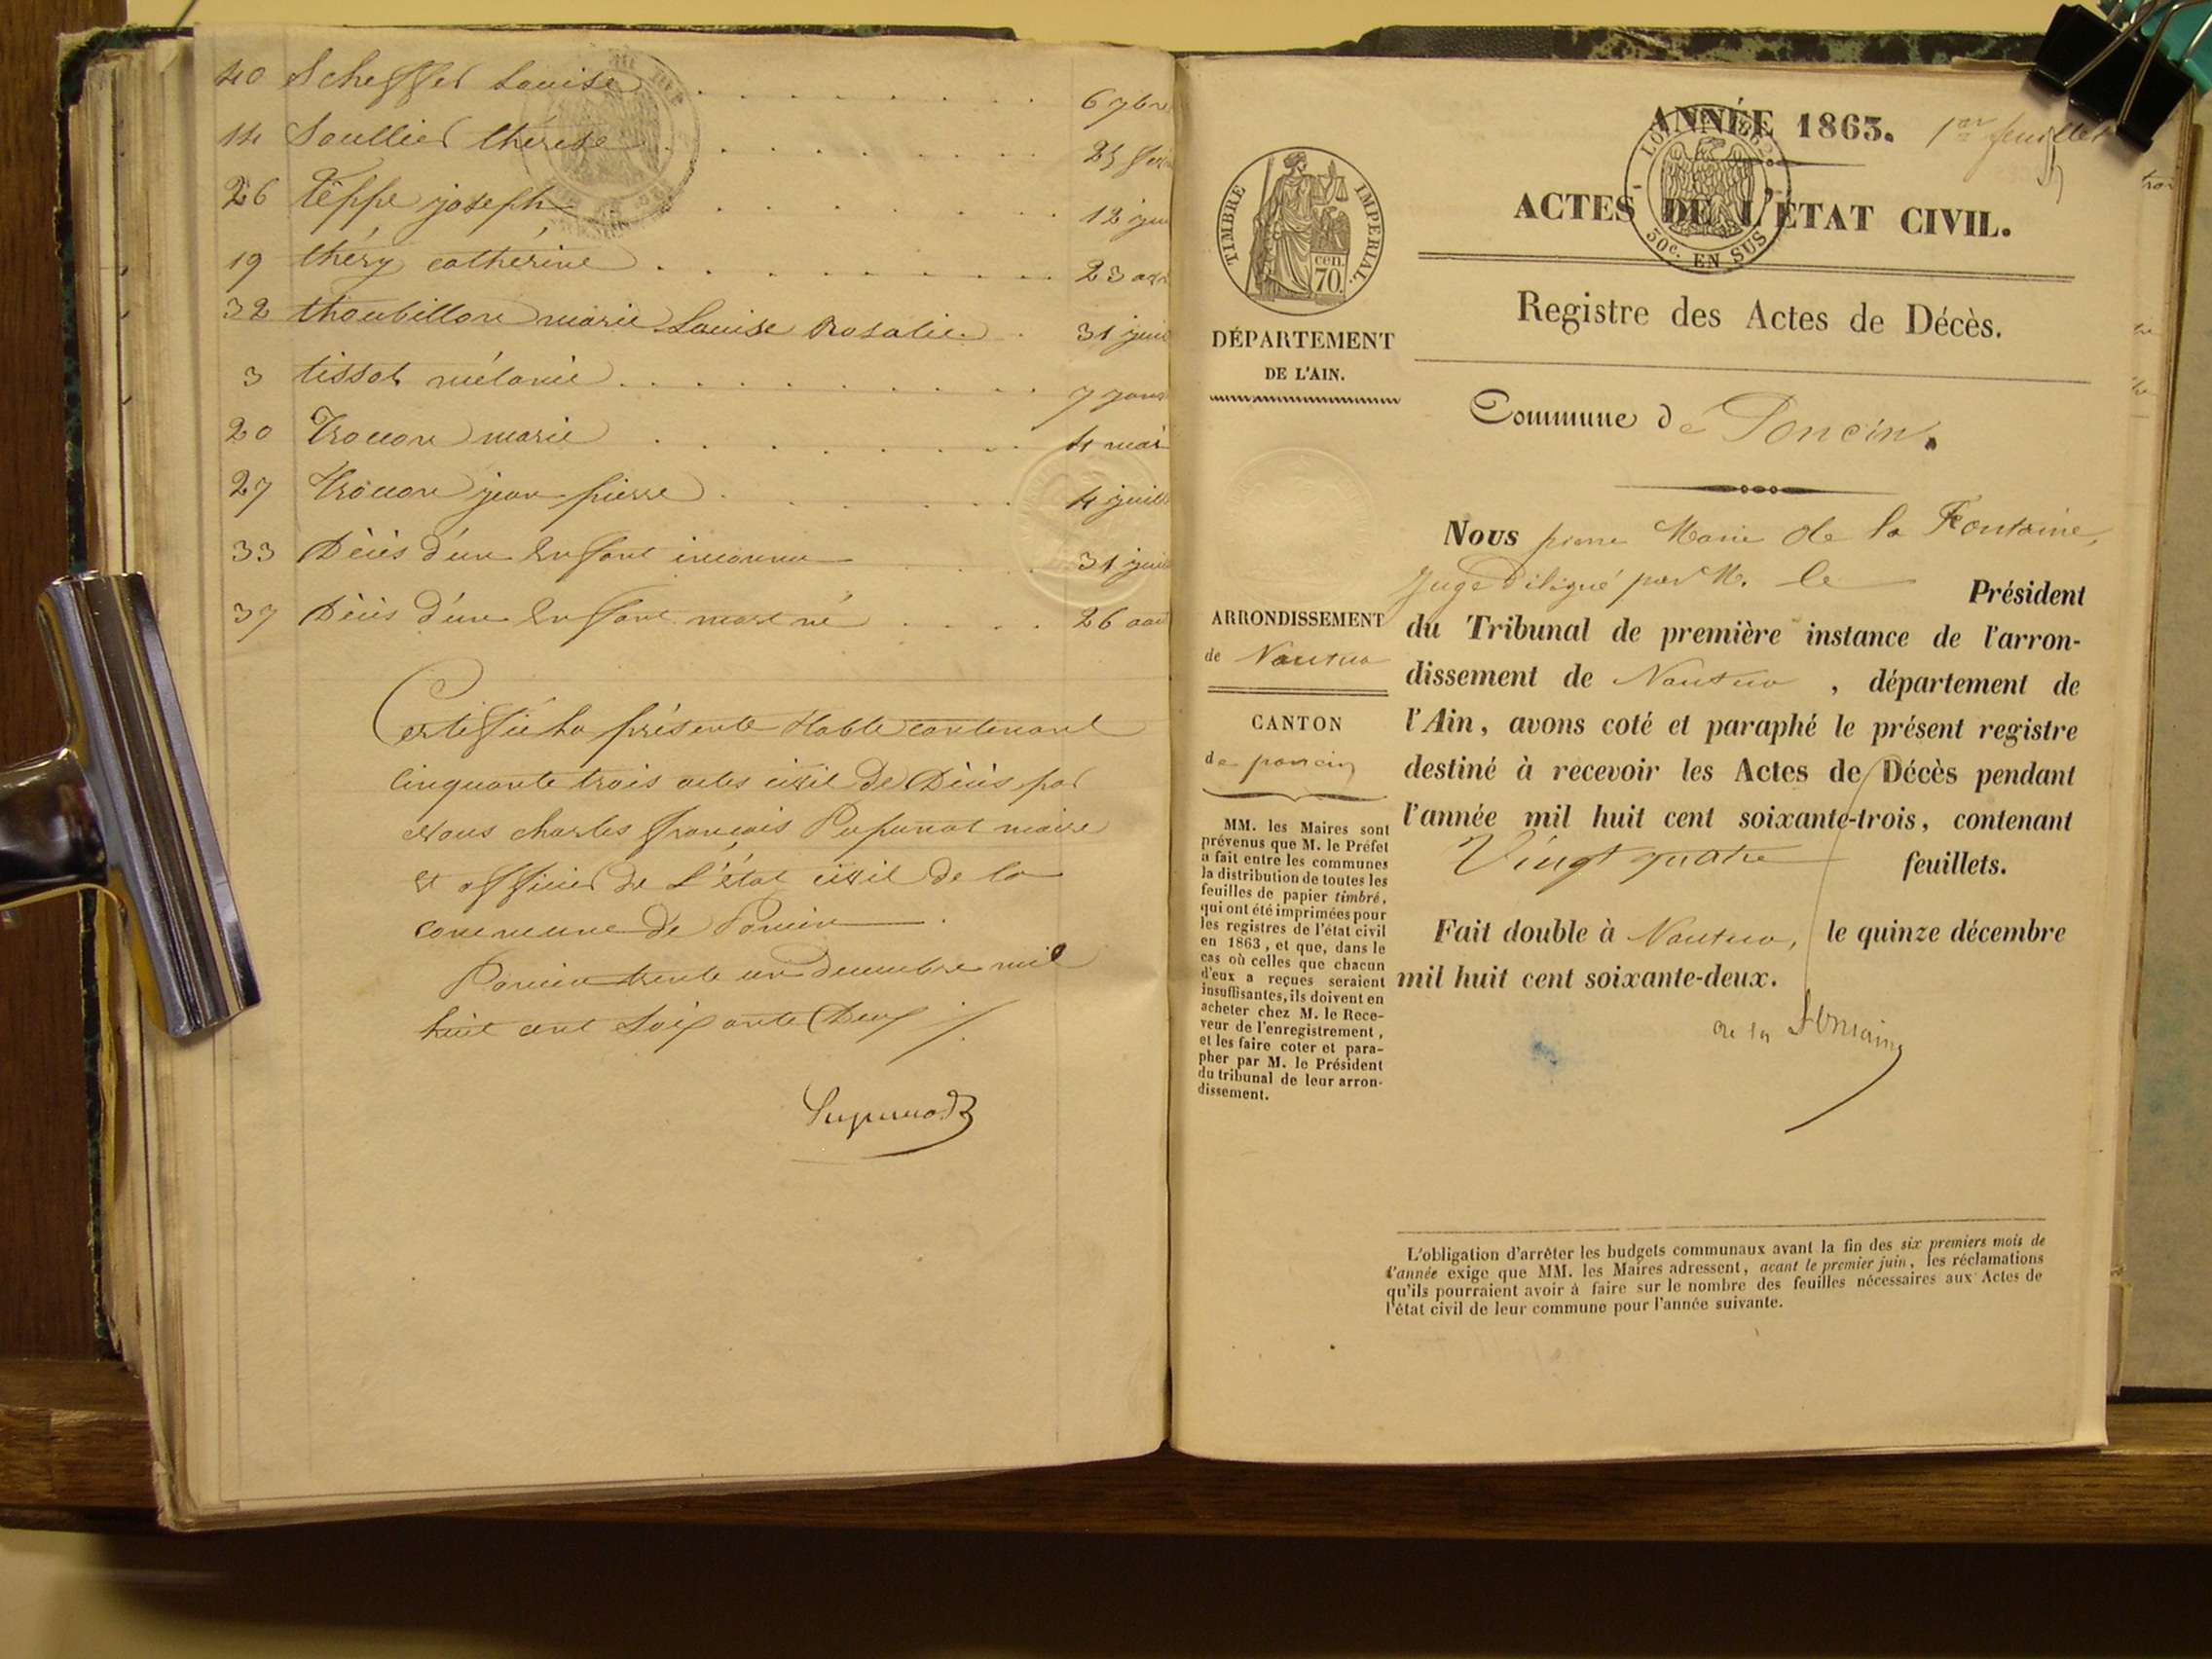 40 Scheffer Louise . . . . . . . . . 6 7bre
14 Soullier thérèse . . . . . . . . 25
26 têppe joseph . . . . . . . . 12
19 théry catherine . . . . . . . . 23
32 thoubillon marie Louise Rosalie . 31
3 tissot mélanie . . . . . . . . . 7 janv
20 Trouon marie . . . . . . . 4 mai
27 Trouon jean pierre . . . . . . 4 juill
33 Décès d'un Enfant inconnu . . . . 31
37 Décès d'un Enfant mort né . . . . 26
Certifié la présente table contenant
Cinquante trois actes civil de Décès par
Nous charles françois Pupunat maire
et officier de L'état civil de la
commune de Poncin .
Poncin trente un decembre mil
huit cent Soixante Deux /.
1er feuillet
ANNÉE 1863.
LOI 1862
30c. EN SUS
ACTES DE L'ÉTAT CIVIL.
Registre des Actes de Décès.
Commune de Poncin.
TIMBRE IMPÉRIAL.
cen.
70.
DÉPARTEMENT
DE L'AIN.
ARRONDISSEMENT
de Nantua
CANTON
de poncin
MM. les Maires sont
prévenus que M. le Préfet
a fait entre les communes
la distribution de toutes les
feuilles de papier timbré,
qui ont été imprimées pour
les registres de l'état civil
en 1863, et que, dans le
cas où celles que chacun
d'eux a reçues seraient
insuffisantes, ils doivent en
acheter chez M. le Rece-
veur de l'enregistrement,
et les faire coter et para-
pher par M. le Président
du tribunal de leur arron-
dissement.
Nous pierre Marie de la Fontaine,
Juge Délégué par M. le Président
du Tribunal de première instance de l'arron-
dissement de Nantua , département de
l'Ain, avons coté et paraphé le présent registre
destiné à recevoir les Actes de Décès pendant
l'année mil huit cent soixante-trois, contenant
Vingt quatre feuillets.
Fait double à Nantua, le quinze décembre
mil huit cent soixante-deux.
de la Fontaine
L'obligation d'arrêter les budgets communaux avant la fin des six premiers mois de
l'année exige que MM. les Maires adressent, avant le premier juin, les réclamations
qu'ils pourraient avoir à faire sur le nombre des feuilles nécessaires aux Actes de
l'état civil de leur commune pour l'année suivante.